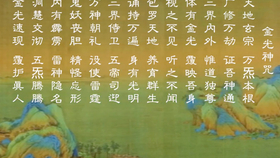 金光神咒
天地玄宗 万炁本根
广修万劫 证吾神通
三界内外 惟道独尊
体有金光 覆映吾身
视之不见 听之不闻
包罗天地 养育群生
诵持万遍 身有光明
三界侍卫 五帝司迎
万神朝礼 役使雷霆
鬼妖丧胆 精怪忘形
内有霹雳 雷神隐名
洞慧交彻 五炁腾腾
金光速现 覆护真人